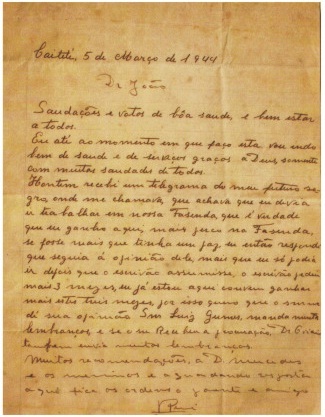 Caetité, 5 de Março de 1944
Dr João
Saudações e votos de bôa saude, e bem estar
a todos.
Eu até ao momento em que faço esta vou indo
bem de saude e de serviços graças a Deus, somente
com muitas saudades de todos.
Hontem recebi um telegrama do meu futuro so
gro, onde me chamava, que achava que eu devia
ir trabalhar em nossa Fazenda, que é verdade
que eu ganho aqui, mais perco na Fazenda,
se fosse mais que tinha um faz, eu então respondi
que seguia a opinião dele, mais que eu só podia
ir depois que o escrivão assumisse, o escrivão pediu
mais 3 mezes, eu já estou aqui convem ganhar
mais estes tres mezes, por isso quero que o snr me
dê sua opinião. Snr Luiz manda muita
lembranças, e se o snr Recebeu a procuração, Dr
tambem envia muitas lembranças.
Muitas recomendações, a D.
e os meninos e aguardando resposta
aqui fica as ordens o parente e amigo